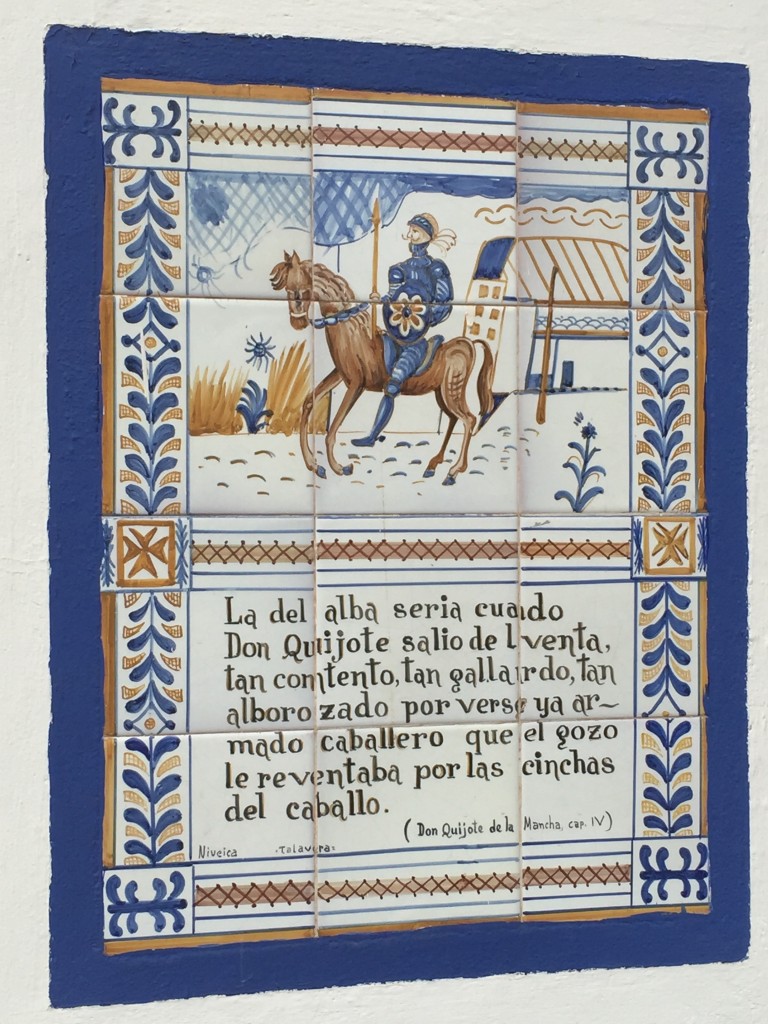 La del alba seria cuando
Don Quijote salio de l venta,
tan contento, tan gallardo, tan
alborozado por verse ya ar~
mado caballero que el gozo
le reventaba por las cinchas
del caballo.
( Don Quijote de la Mancha, cap. IV)
Niveica -Talavera-